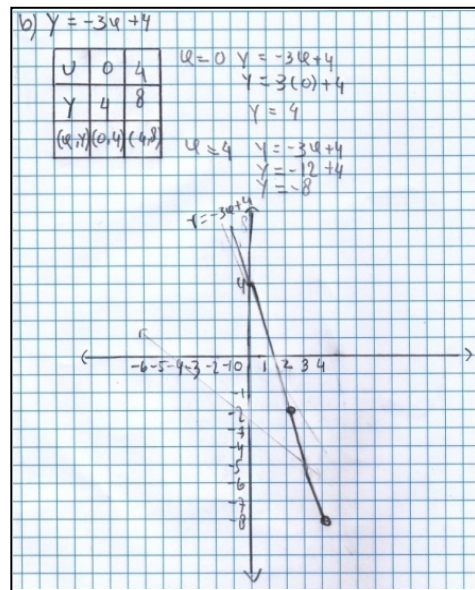 b) y = -3x + 4
x 0 4
y 4 8
(x,y) (0,4) (4,8)
x = 0 y = -3x + 4
y = 3(0) + 4
y = 4
x = 4 y = -3x + 4
y = -12 + 4
y = -8
y = -3x + 4
4
-6 -5 -4 -3 -2 -1 0 1 2 3 4
-1
-2
-3
-4
-5
-6
-7
-8